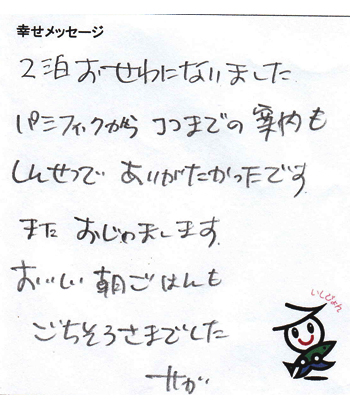 幸せメッセージ
2泊おせわになりました
パシフィックから ココまでの案内も
しんせつで ありがたかったです
また おじゃまします
おいしい 朝ごはんも
ごちそうさまでした